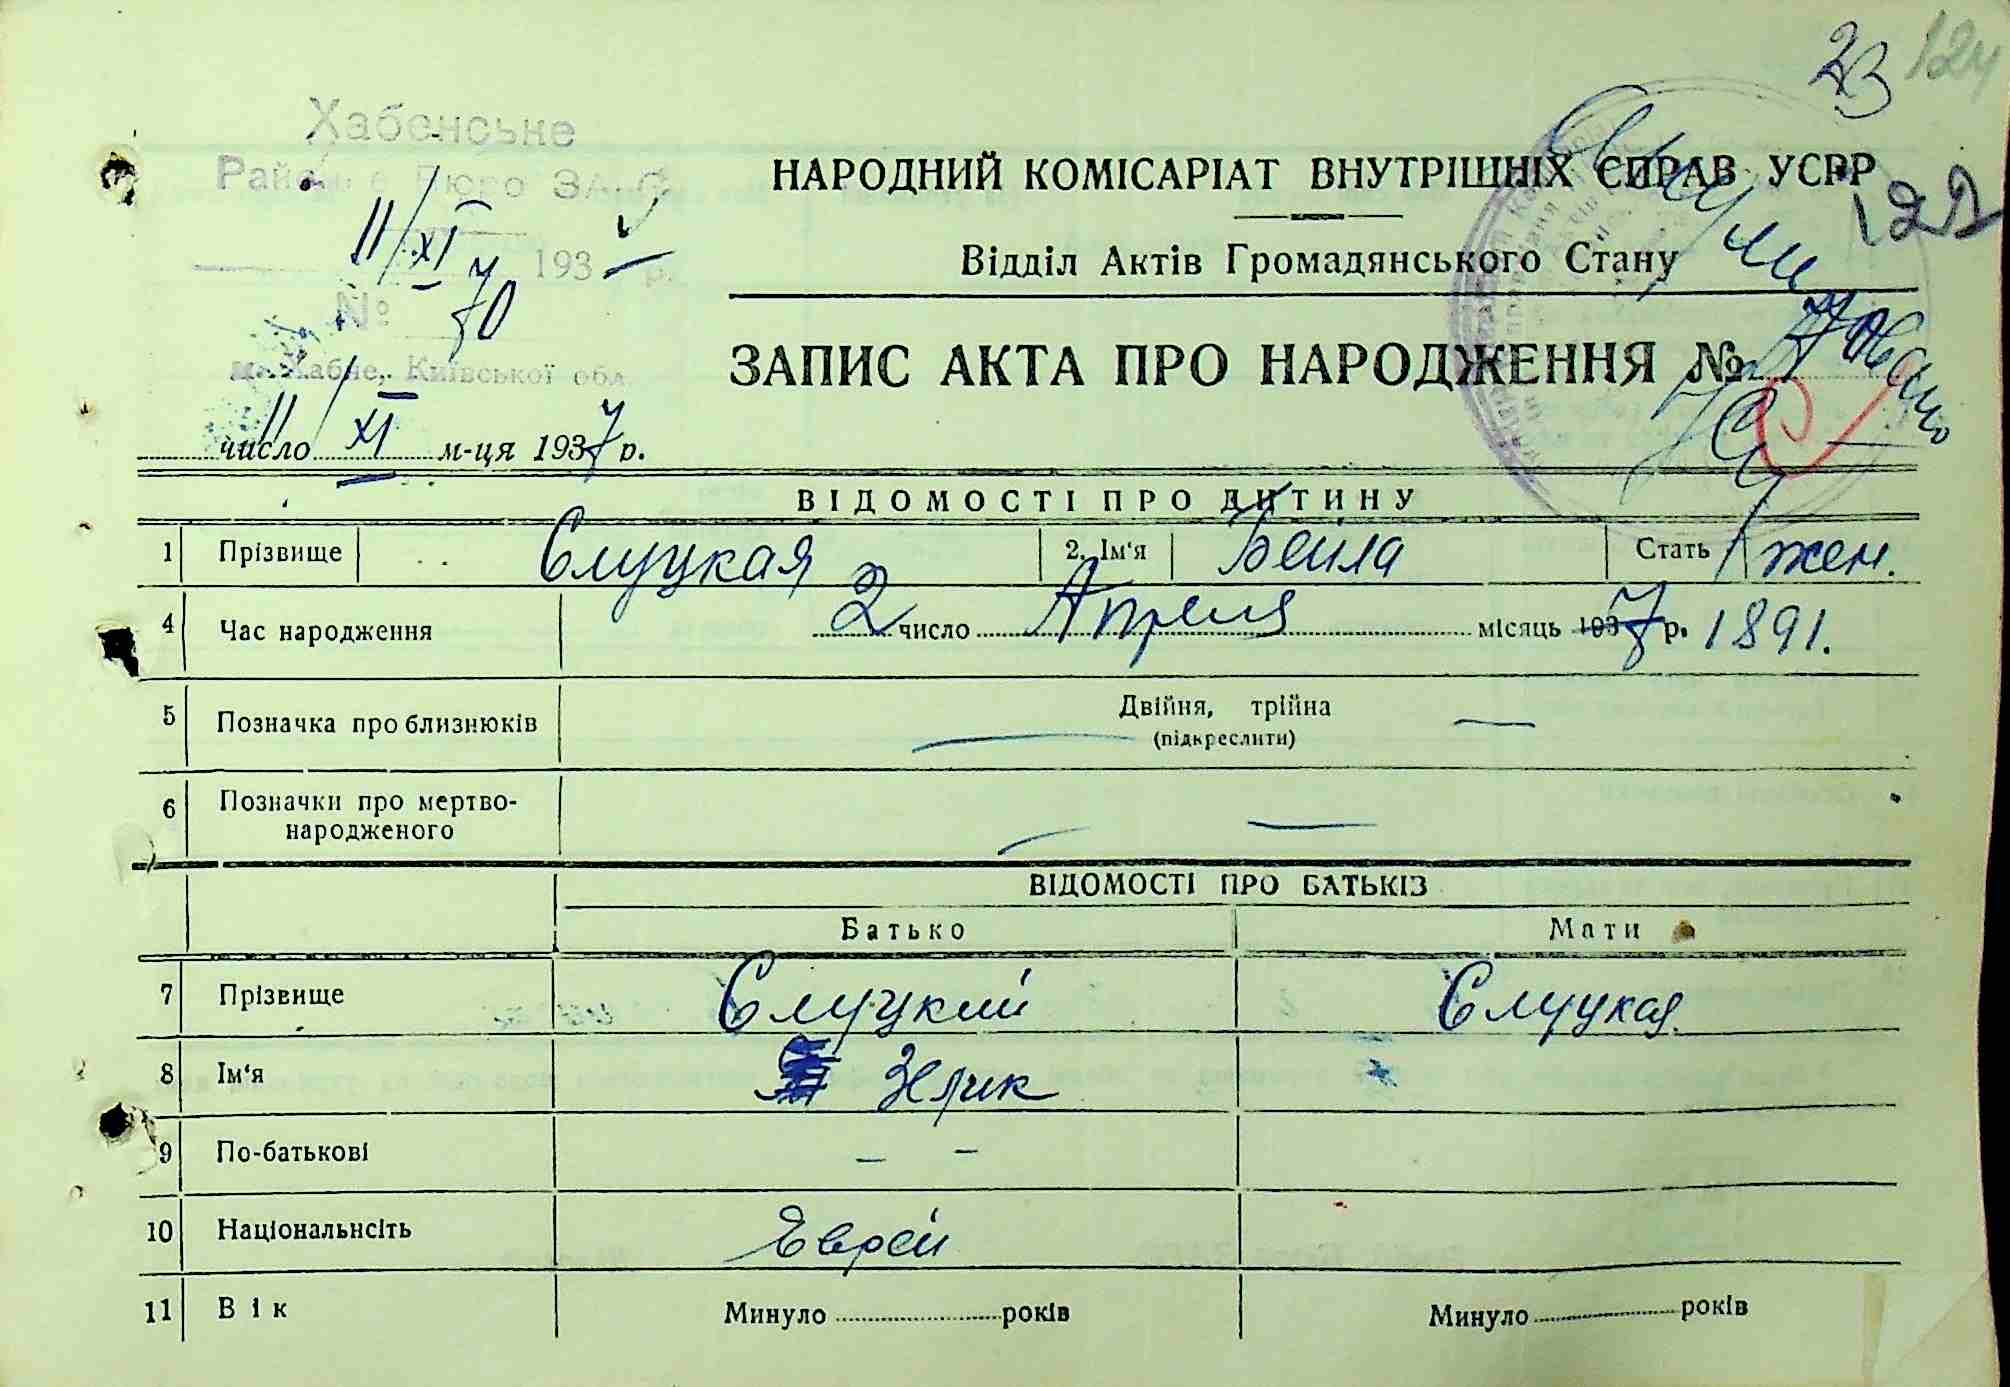 23 124
Хабенське
Районне Бюро ЗАГС
11/XI 1937 р.
№ 70
м. Хабне, Київської обл.
11/ число XI м-ця 1937 р.
НАРОДНИЙ КОМІСАРІАТ ВНУТРІШНІХ СПРАВ УСРР
122
Відділ Актів Громадянського Стану
ЗАПИС АКТА ПРО НАРОДЖЕННЯ № 70
ВІДОМОСТІ ПРО ДИТИНУ
1 Прізвище Слуцкая 2. Ім‘я Бейла Стать жен.
4 Час народження 2 число Апреля місяць 1937 р. 1891.
5 Позначка про близнюків Двійня, трійна —
(підкреслити)
6 Позначки про мертво-
народженого — —
ВІДОМОСТІ ПРО БАТЬКІЗ
Батько Мати
7 Прізвище Слуцкий Слуцкая
8 Ім‘я Зелик
9 По-батькові – –
10 Національнсіть Еврей
11 Вік Минуло ........ років Минуло ........ років